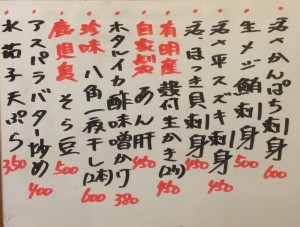 活〆かんぱち刺身 600
生メジ鮪刺身 500
活〆平スズキ刺身 450
活ほっき貝刺身 450
有明産 殻付生かき(2ヶ) 450
自家製 あん肝 450
ホタルイカ酢味噌かけ 380
珍味 八角一夜干し(1本) 600
鹿児島 そら豆 500
アスパラバター炒め 400
水茄子天ぷら 350